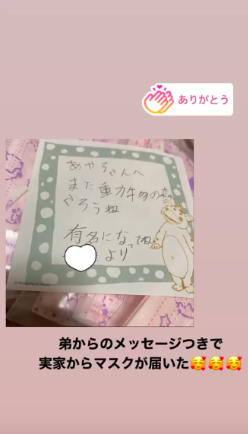 ありがとう
あやちゃんへ
また
やろうね
有名になってね
より
弟からのメッセージつきで
実家からマスクが届いた🥰🥰🥰